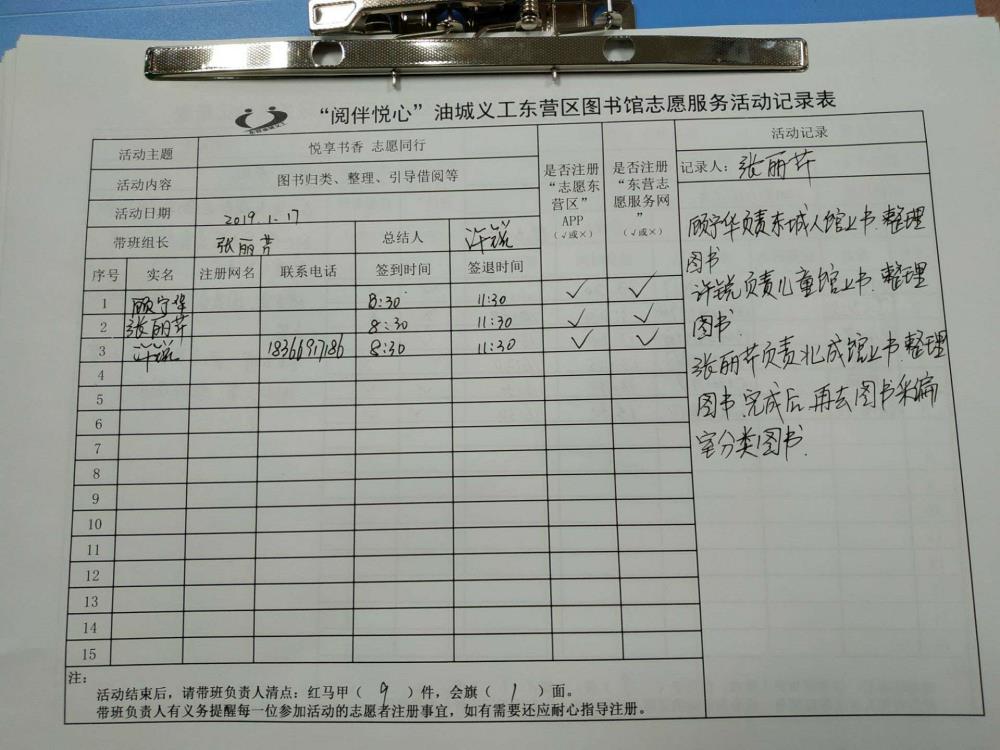 “阅伴悦心”油城义工东营区图书馆志愿服务活动记录表
活动主题 悦享书香 志愿同行
活动内容 图书归类、整理、引导借阅等
活动日期 2019.1.17
带班组长 张丽芹 总结人 许锐
是否注册“志愿东营区”APP（√或×）
是否注册“东营志愿服务网”（√或×）
活动记录
记录人：张丽芹
序号 实名 注册网名 联系电话 签到时间 签退时间
1 顾宁华 8:30 11:30 √ √
2 张丽芹 8:30 11:30 √ √
3 许锐 18366917186 8:30 11:30 √ √
4
5
6
7
8
9
10
11
12
13
14
15
顾宁华负责东城人馆上书.整理
图书
许锐负责儿童馆上书.整理
图书.
张丽芹负责北成馆上书.整理
图书.完成后.再去图书采编
室分类图书.
注：
活动结束后，请带班负责人清点：红马甲（ 9 ）件，会旗（ 1 ）面。
带班负责人有义务提醒每一位参加活动的志愿者注册事宜，如有需要还应耐心指导注册。